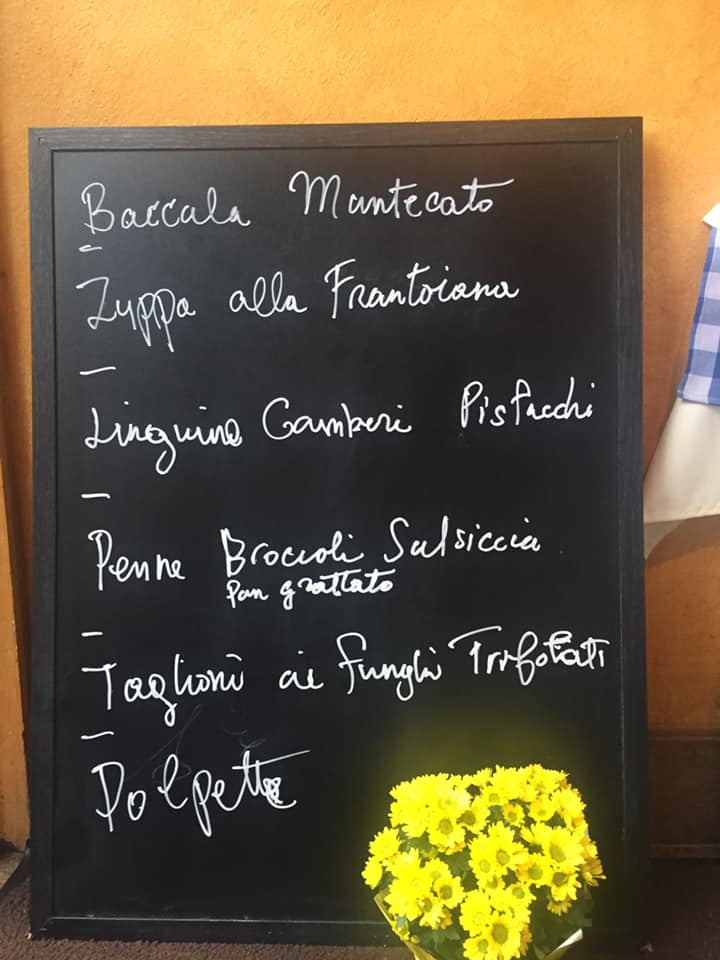 Baccala Mantecato
Zuppa alla Frantoiana
Linguine Gamberi Pistacchi
Penne Broccoli Salsiccia
Pan grattato
Taglioni ai funghi Trifolati
Polpette